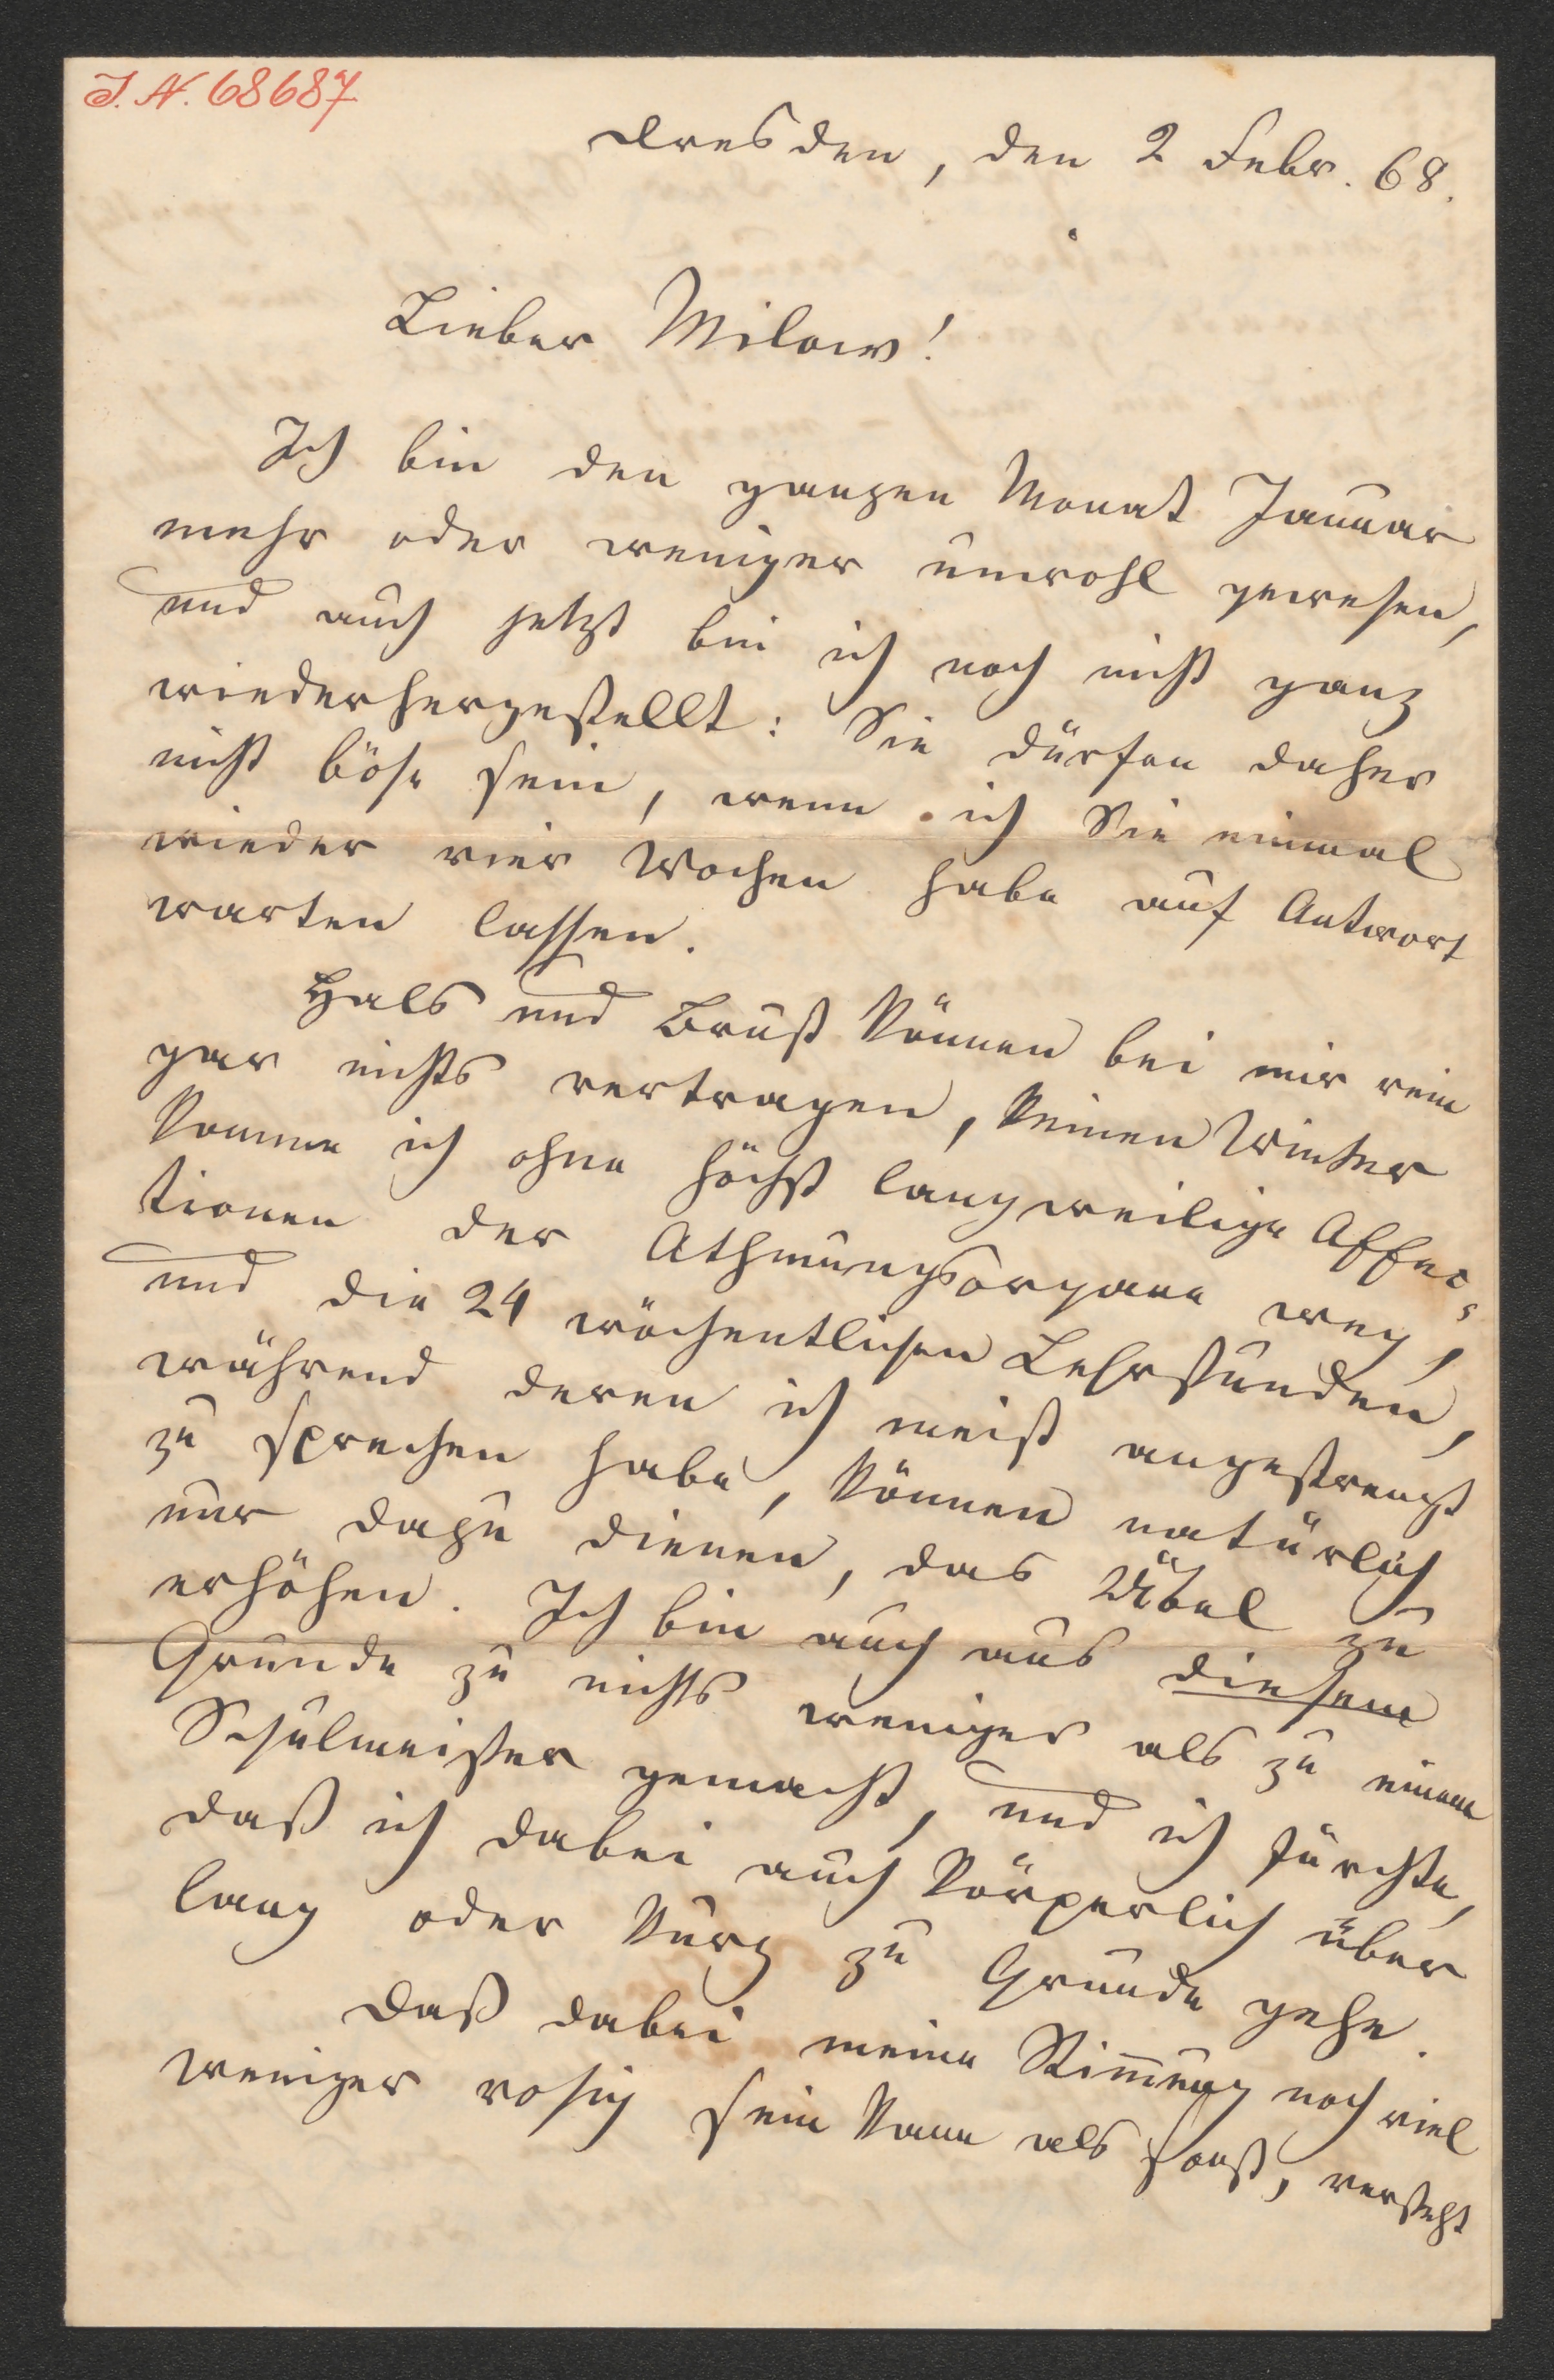 I. N. 68687
Dresden, den 2 Febr. 68.
Lieber Milow!
Ich bin den ganzen Monat Januar
mehr oder weniger unwohl gewesen,
und auch jetzt bin ich noch nicht ganz
wiederhergestellt: Sie dürfen daher
nicht böse sein, wenn ich Sie einmal
wieder vier Wochen habe auf Antwort
warten lassen.
Hals und Brust können bei mir rein
gar nichts vertragen, keinen Winter
komme ich ohne höchst langweilige Affec-
tionen der Athmungsorgane weg,
und die 24 wöchentlichen Lehrstunden,
während deren ich meist angestrengt
zu sprechen habe, können natürlich
nur dazu dienen, das Übel zu
erhöhen. Ich bin auch aus diesem
Grunde zu nichts weniger als zu einem
Schulmeister gemacht, und ich fürchte,
daß ich dabei auch körperlich über
lang oder kurz zu Grunde gehe.
Daß dabei meine Stim̄ung noch viel
weniger rosig sein kann als sonst, versteht